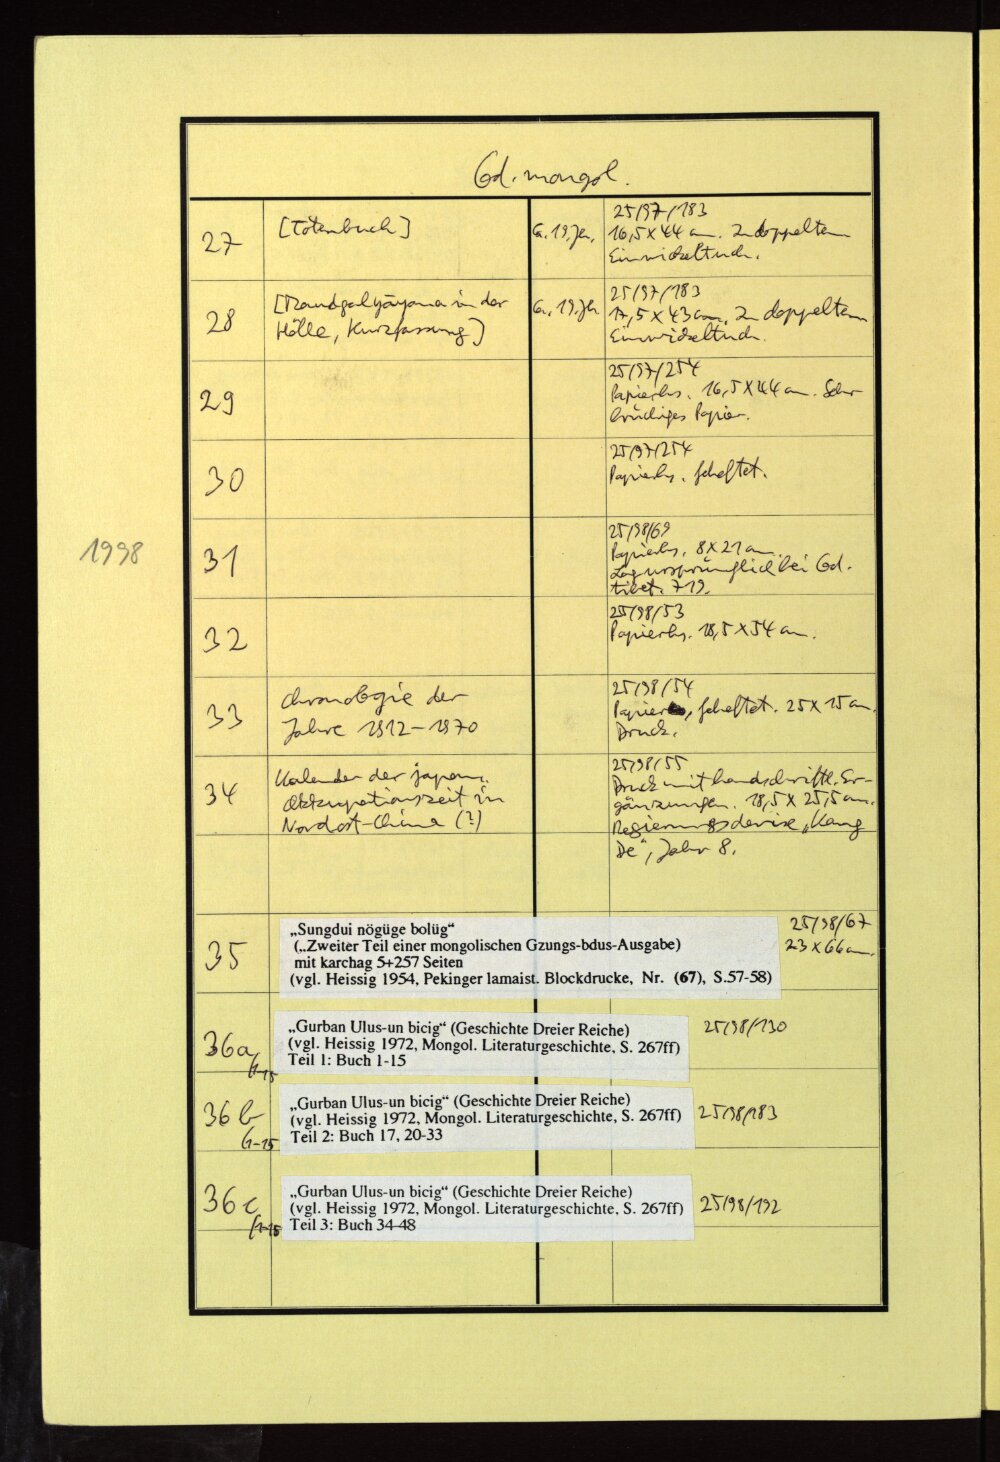 Cod. mongol.
27
[Totenbuch]
Ca. 19. Jh.
25/97/183
16,5 X 44 cm. In doppeltem
Einwickeltuch.
28
[Maudgalyāyana in der
Hölle, Kurzfassung]
Ca. 19. Jh.
25/97/183
17,5 X 43 cm. In doppeltem
Einwickeltuch.
29
25/97/254
Papierhs. 16,5 X 44 cm. Sehr
brüchiges Papier.
30
25/97/254
Papierhs. geheftet.
1998
31
25/98/69
Papierhs. 8 X 21 cm.
Lag ursprünglich bei Cod.
tibet. 719.
32
25/98/53
Papierhs. 18,5 X 54 cm.
33
Chronologie der
Jahre 1912–1970
25/98/54
Papier, geheftet. 25 X 15 cm.
Druck.
34
Kalender der japan.
Okkupationszeit in
Nordost-China (?)
25/98/55
Druck mit handschriftl. Er-
gänzungen. 18,5 X 25,5 cm.
Regierungsdevise „Kang
De“, Jahr 8.
35
„Sungdui nögüge bolüg“
(„Zweiter Teil einer mongolischen Gzungs-bdus-Ausgabe)
mit karchag 5+257 Seiten
(vgl. Heissig 1954, Pekinger lamaist. Blockdrucke, Nr. (67), S.57-58)
25/98/67
23 X 66 cm.
36a
(1-15
„Gurban Ulus-un bicig“ (Geschichte Dreier Reiche)
(vgl. Heissig 1972, Mongol. Literaturgeschichte, S. 267ff)
Teil 1: Buch 1-15
25/98/130
36b
(1-15
„Gurban Ulus-un bicig“ (Geschichte Dreier Reiche)
(vgl. Heissig 1972, Mongol. Literaturgeschichte, S. 267ff)
Teil 2: Buch 17, 20-33
25/98/183
36c
(1-15
„Gurban Ulus-un bicig“ (Geschichte Dreier Reiche)
(vgl. Heissig 1972, Mongol. Literaturgeschichte, S. 267ff)
Teil 3: Buch 34-48
25/98/192